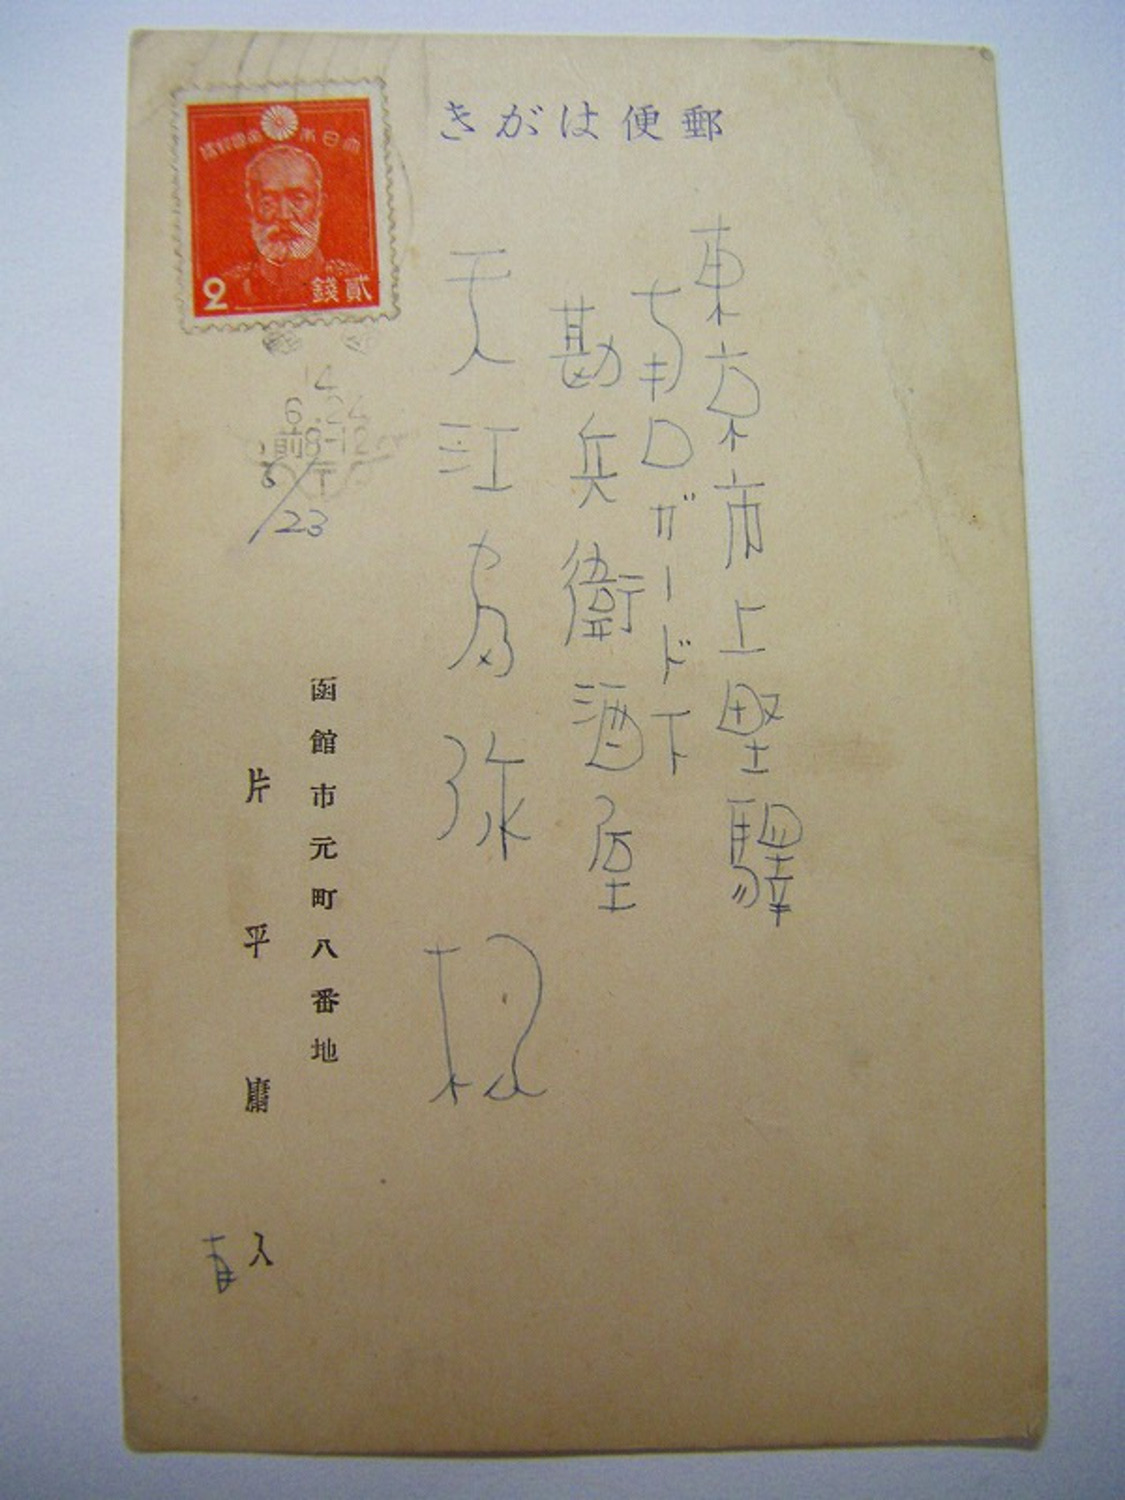 郵便はがき
大日本帝國郵便
貳錢
2
東京市上野驛
南口ガード下
勘兵衛酒屋
天江富弥様
14
6.24
前8-12
6/23
函館市元町八番地
片平庸人